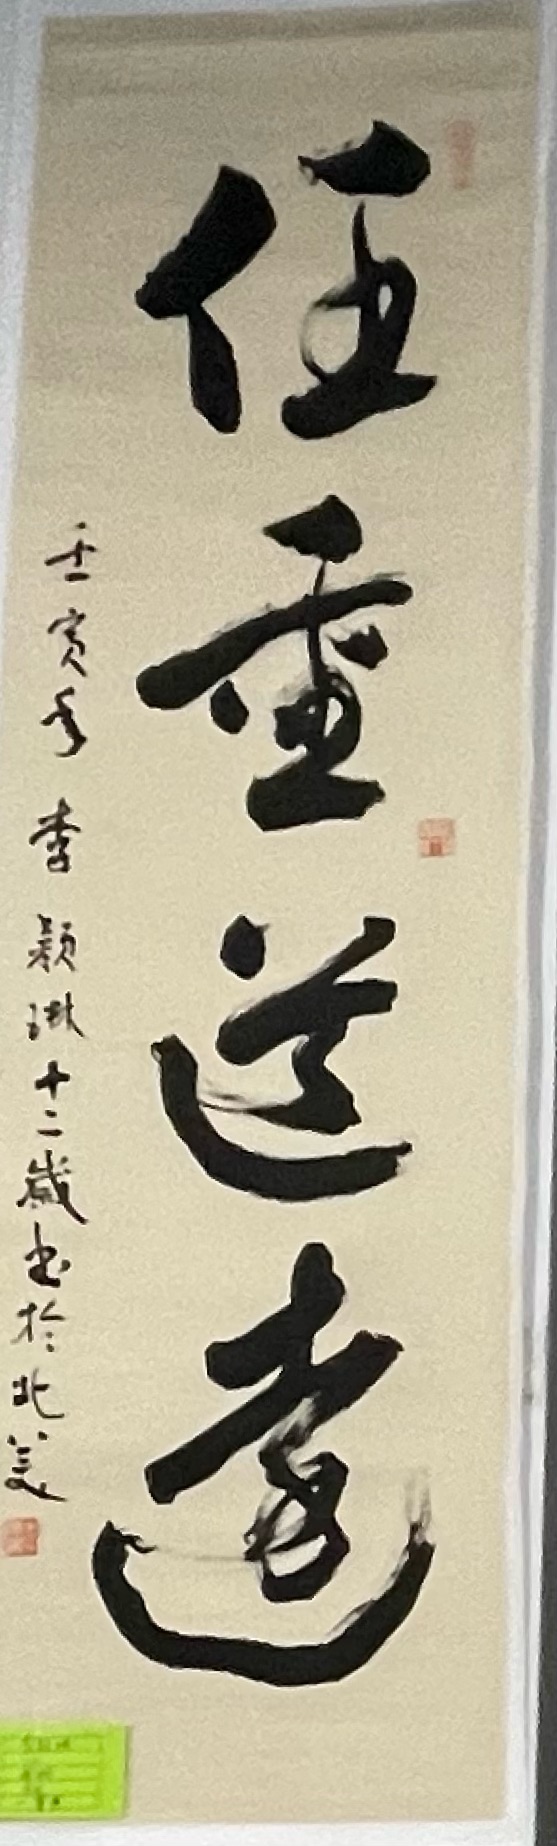 任重道遠
壬寅年 李穎琳十二歲书於北美